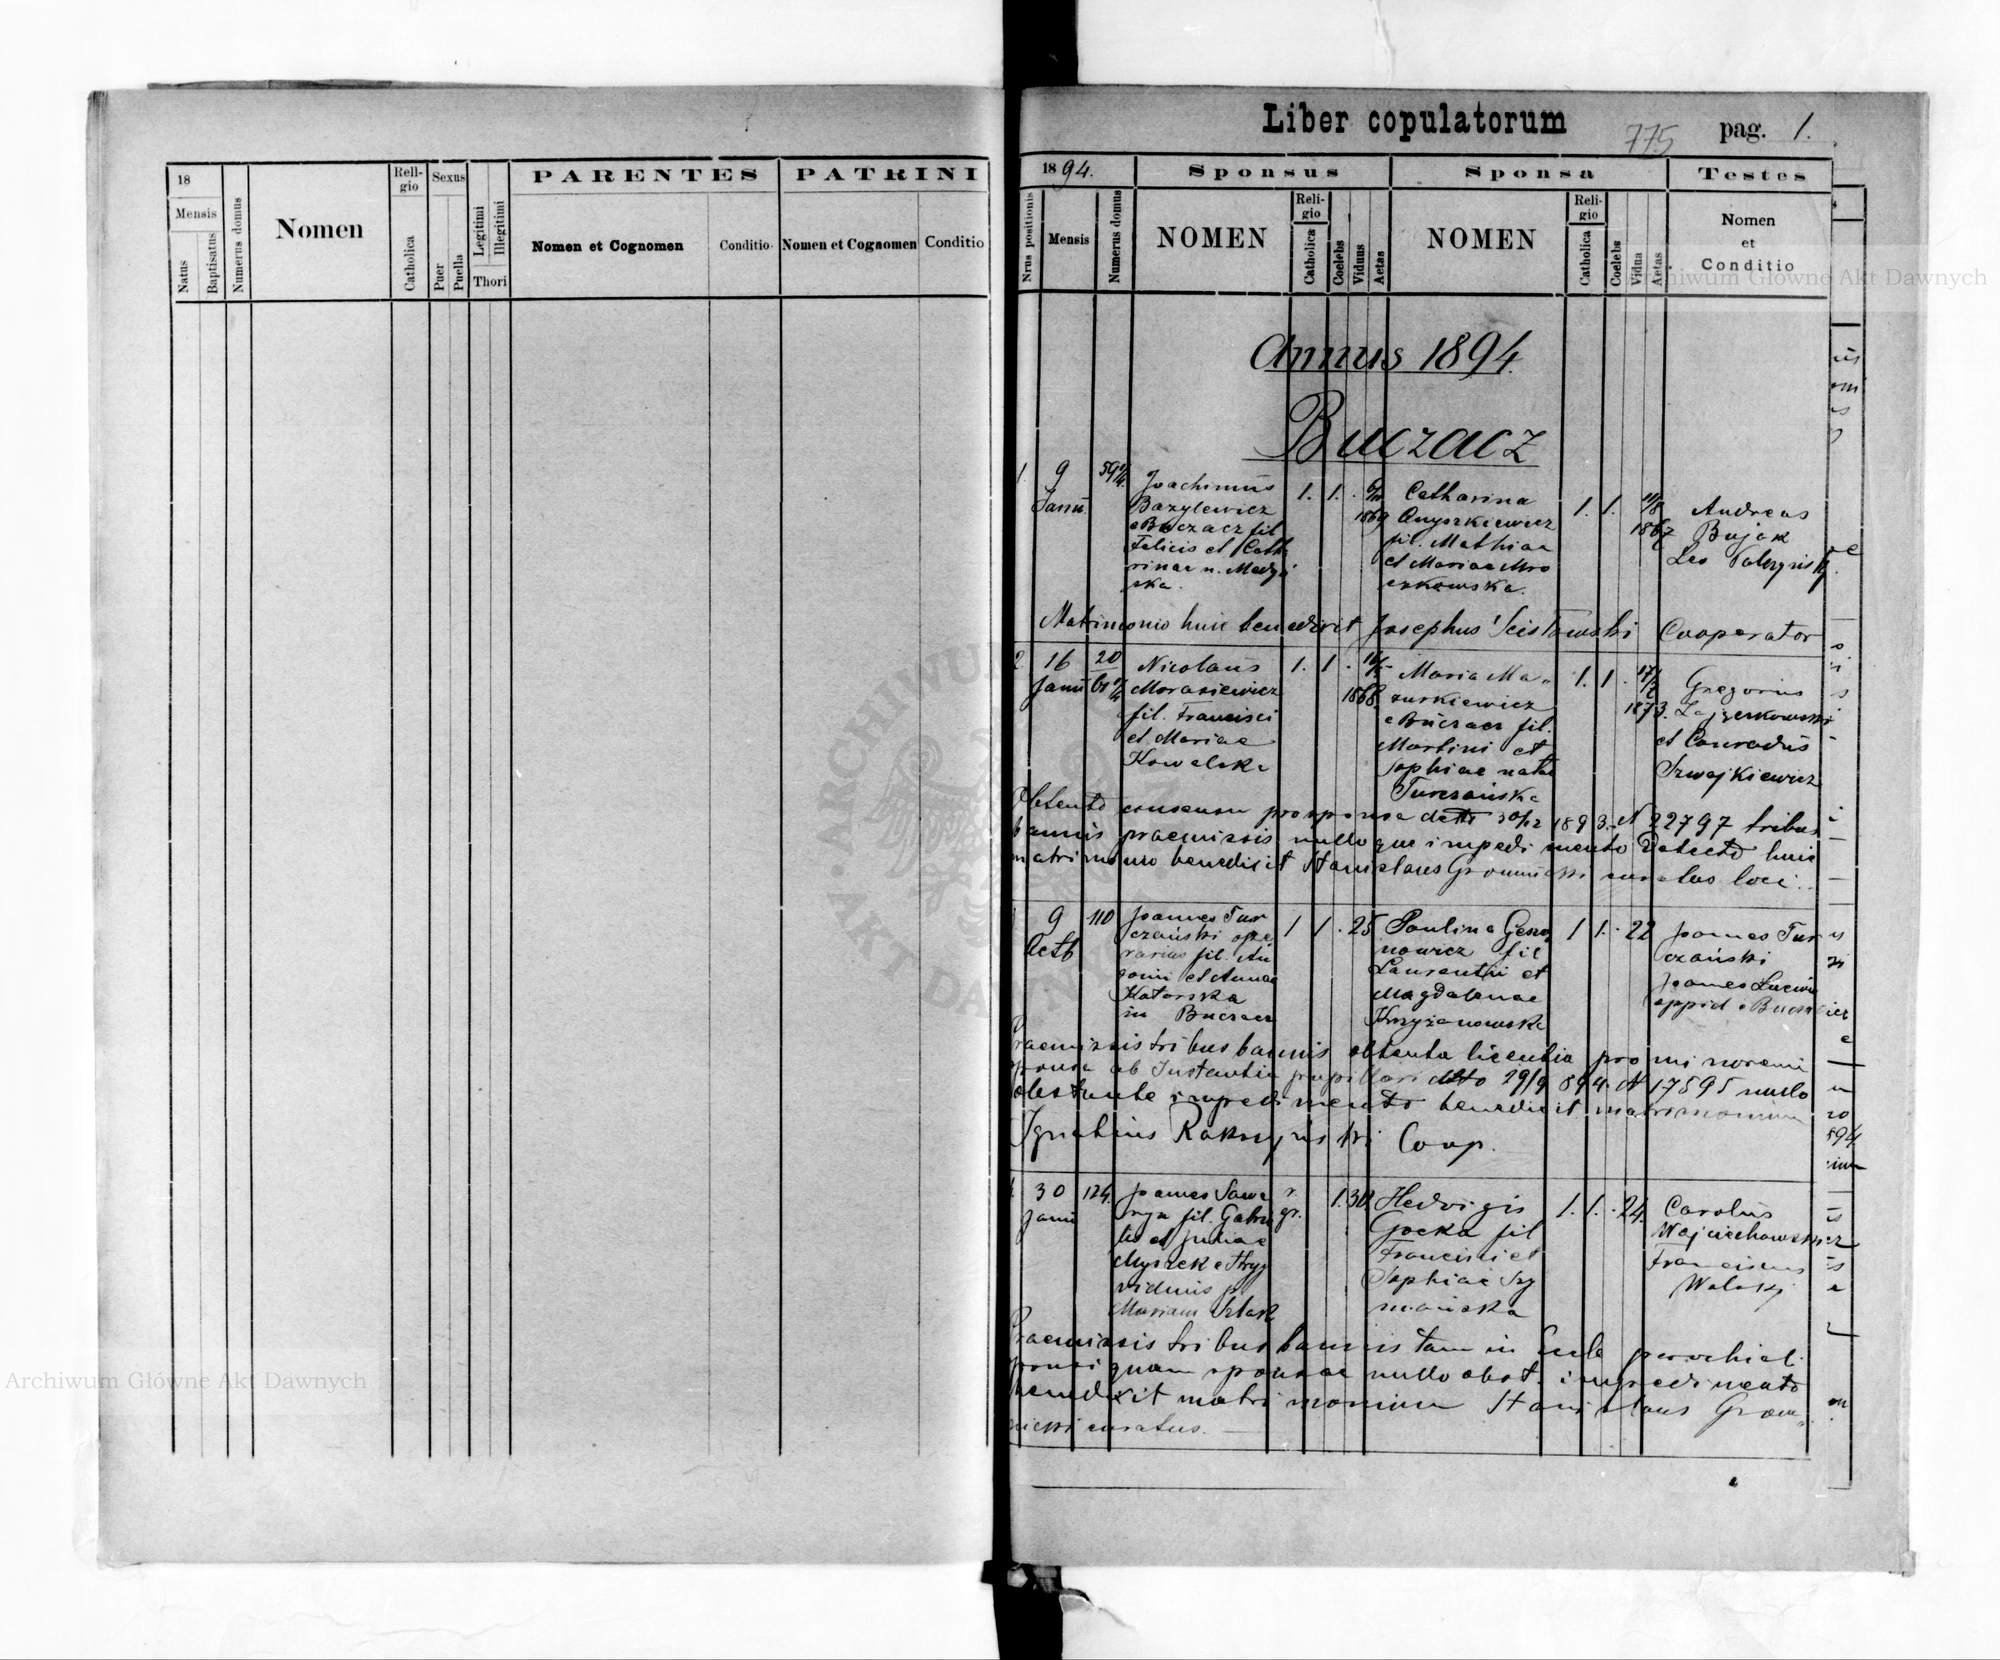 18
Mensis
Natus
Baptisatus
Numerus domus
Nomen
Reli-
gio
Catholica
Sexus
Puer
Puella
Legitimi
Illegitimi
Thori
PARENTES
Nomen et Cognomen
Conditio
PATRINI
Nomen et Cognomen
Conditio
Liber copulatorum
775
pag. 1.
1894.
Nrus positionis
Mensis
Numerus domus
Sponsus
NOMEN
Reli-
gio
Catholica
Coelebs
Viduus
Aetas
Sponsa
NOMEN
Reli-
gio
Catholica
Coelebs
Vidua
Aetas
Testes
Nomen
et
Conditio
Annus 1894.
Buczacz
1. 9
Janu.
Joachimus
Bazylewicz
e Buczacz fil
Felicis et Catha
rinae n. Madyj
ska.
1. 1.
1869
Catharina
Onyszkiewicz
fil. Mathiae
et Mariae Mro
czkowska.
1. 1.
11/8
1867
Andreas
Bujak
Leo
Matrimonio huic benedixit Josephus Cooperator
2 16
Janu
20
Nicolaus
Morasiewicz
fil. Francisci
et Mariae
Kowalska
1. 1.
1868.
Maria Ma-
zurkiewicz
e Buczacz fil.
Martini et
Sophiae natae
Turczańska
1. 1.
1873.
Gregorius
et Conradus
Szwajkiewicz
Obtento consensu pro sponsa dtto 30/12 1893 N 22797 tribus
bannis praemissis nulloque impedimento detecto huic
matrimonio benedixit Stanislaus Gromnicki curatus loci.
9
Actb
110
Joannes Tur
czański ope
rarius fil. An
tonii et Annae
Katorska
in Buczacz
1 1. 25
Paulina
nowicz fil
Laurentii et
Magdalenae
Krzyżanowska
1 1. 22
Joannes Tur
czański
Joannes
oppid e Bucz
Praemissis tribus bannis obtenta licentia pro minorenni
sponsa ab Instantia pupillari dtto 29/9 894. N 17595 nullo
obstante impedimento benedixit matrimonium
Ignatius Coop.
30
Janu
124.
Joannes Sawe
ryn fil. Gabrie
lis et Juliae
Myszek
viduus p.
Mariam
r.
gr.
1. 30
Hedwigis
Gocka fil
Francisci et
Sophiae Szy
mańska
1. 1. 24.
Carolus
Wojciechowski
Franciscus
Wolski
Praemissis tribus bannis tam in Eccle parochiali
sponsi quam sponsae nullo obst. impedimento
benedixit matrimonium Stanislaus Grom-
nicki curatus.
Archiwum Główne Akt Dawnych
Archiwum Główne Akt Dawnych